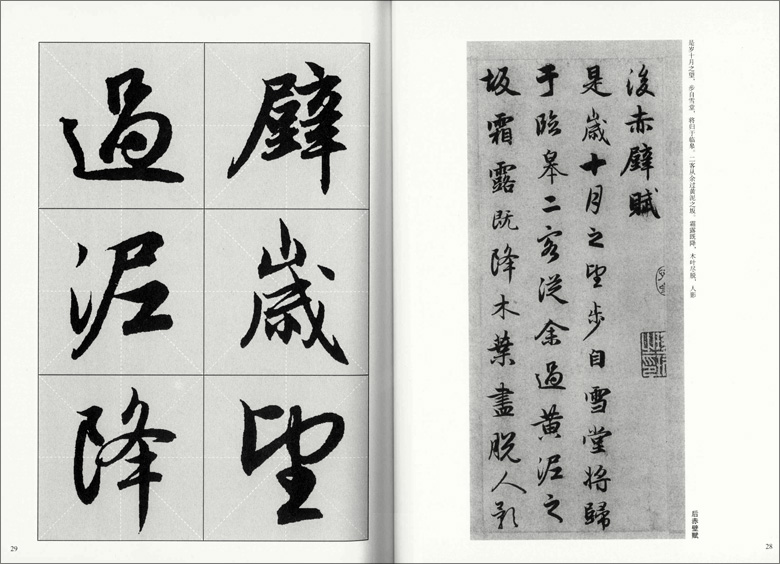 是岁十月之望，步自雪堂，将归于临皋。二客从余过黄泥之坂。霜露既降，木叶尽脱，人影
後赤壁賦
是歲十月之望步自雪堂將歸
于臨皋二客從余過黄泥之
坂霜露既降木葉盡脱人影
后赤壁赋
28
壁
歲
望
過
泥
降
29